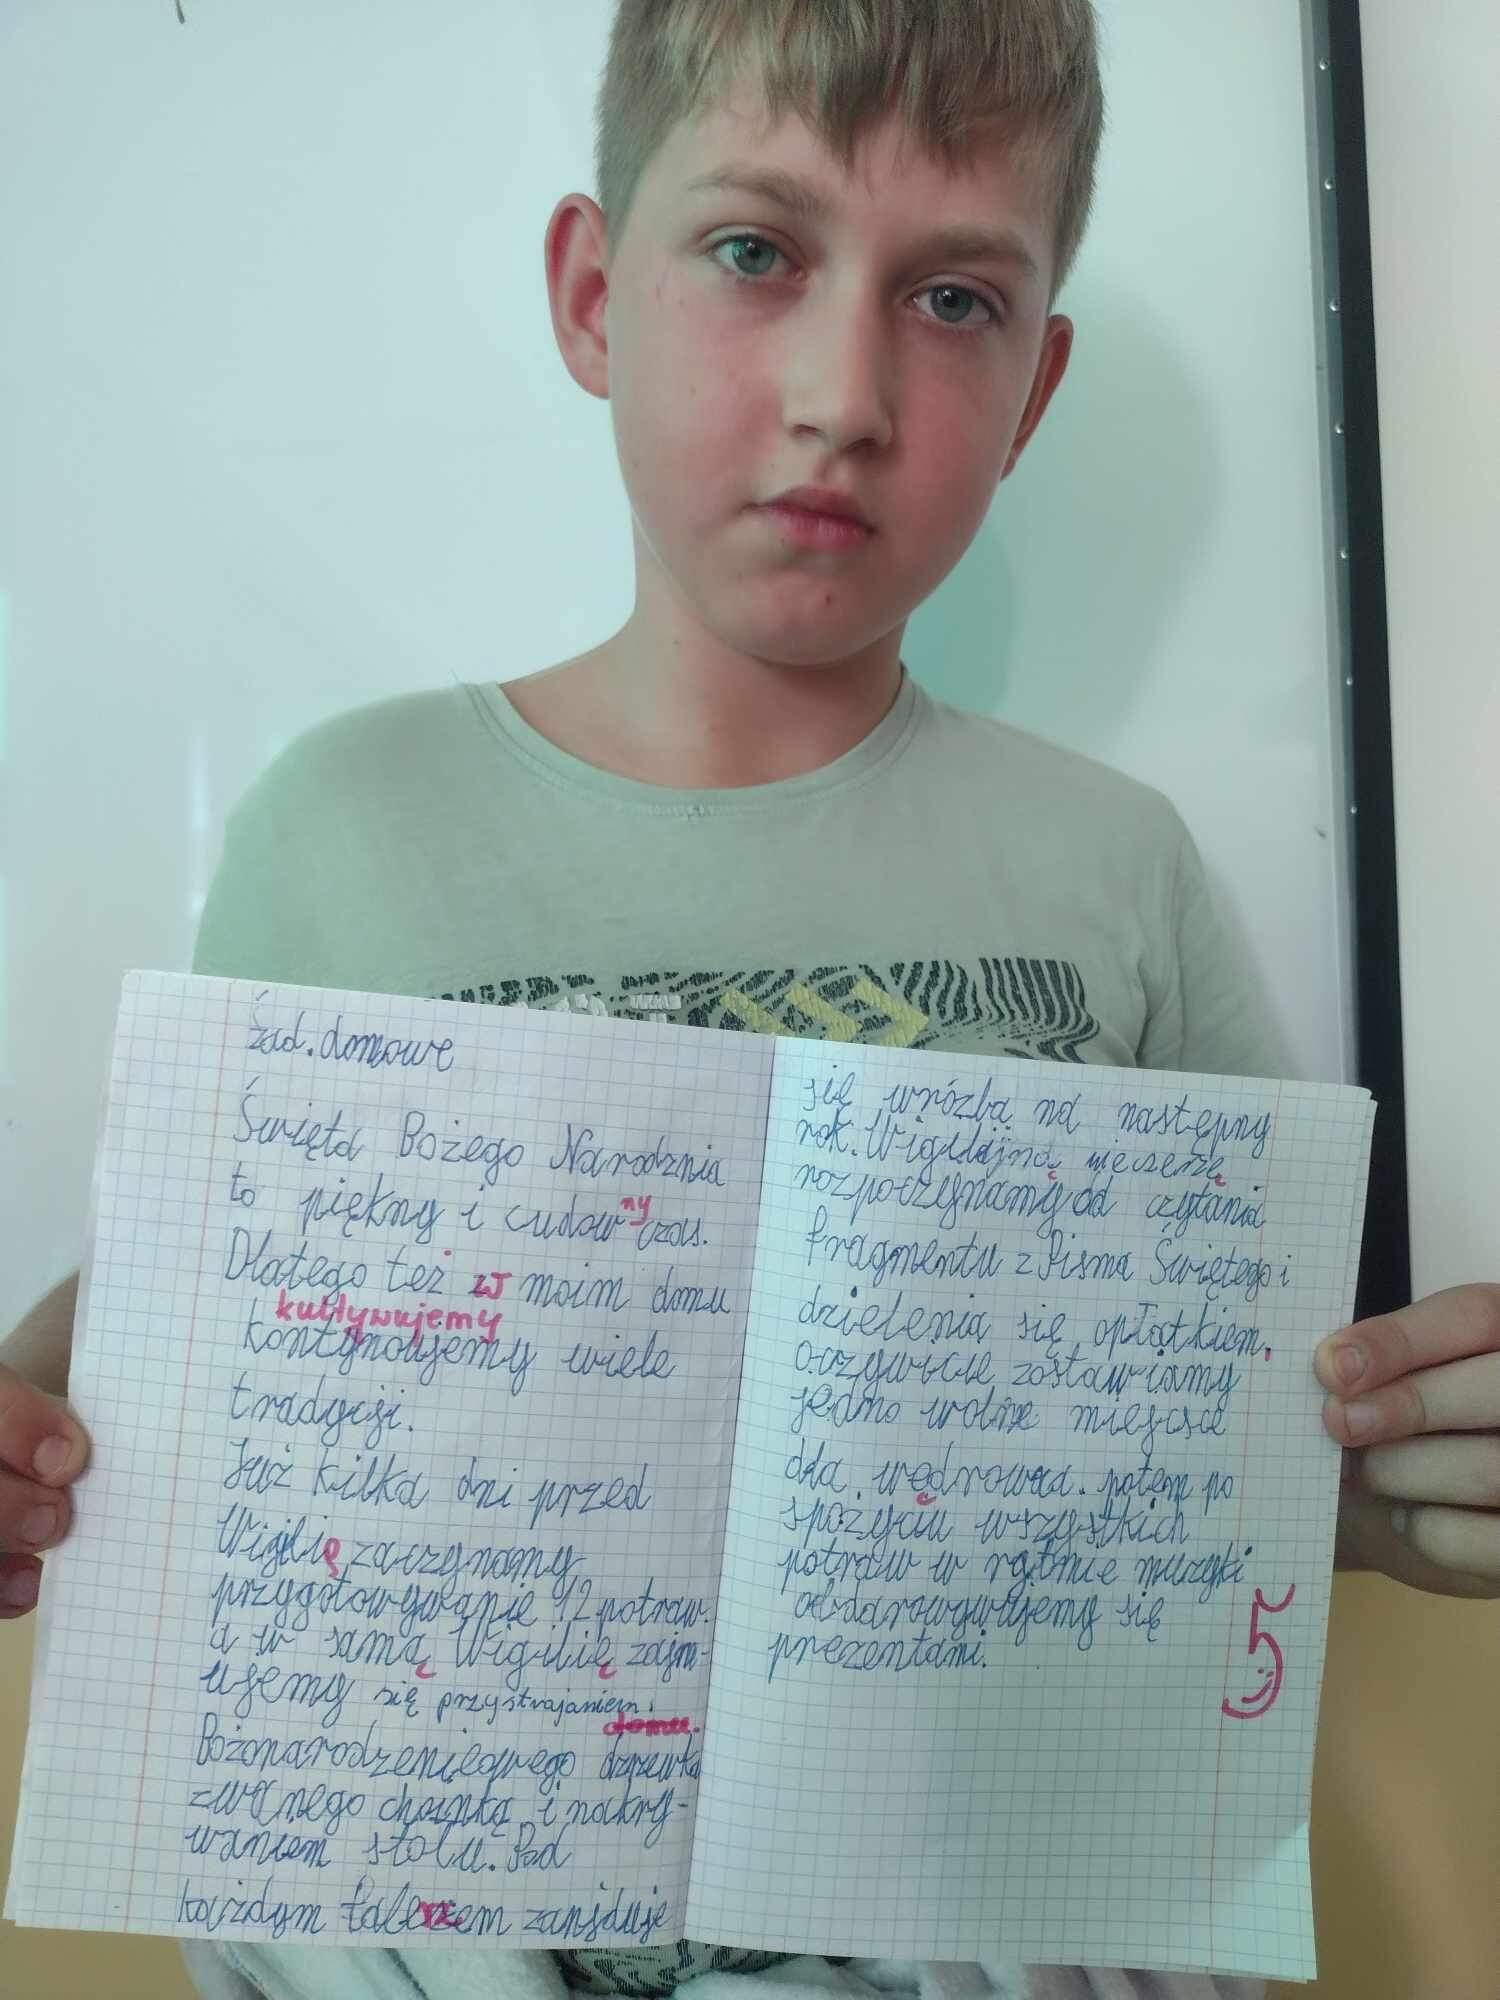 Zad. domowe
Święta Bożego Narodznia
to piękny i cudowny czas.
Dlatego też w moim domu
kultywujemy
kontynoujemy wiele
tradycji.
Już kilka dni przed
Wigilią zaczynamy
przygotowywanie 12 potraw.
a w samą Wigilię zajm-
ujemy się przystrajaniem.
domu.
Bożonarodzenieowego drzewka
zwanego choinką i nakry-
waniem stołu. Pod
każdym talerzem zanjduje
się wróżba na następny
rok. Wigilijną wieczerzę
rozpoczynamy od czytania
fragmentu z Pisma Świętego i
dzielenia się opłatkiem.
oczywście zostawiamy
jedno wolne miejsce
dla wędrowca. potem po
spożyciu wszystkich
potraw w rytmie muzyki
obdarowywujemy się
prezentami.
5